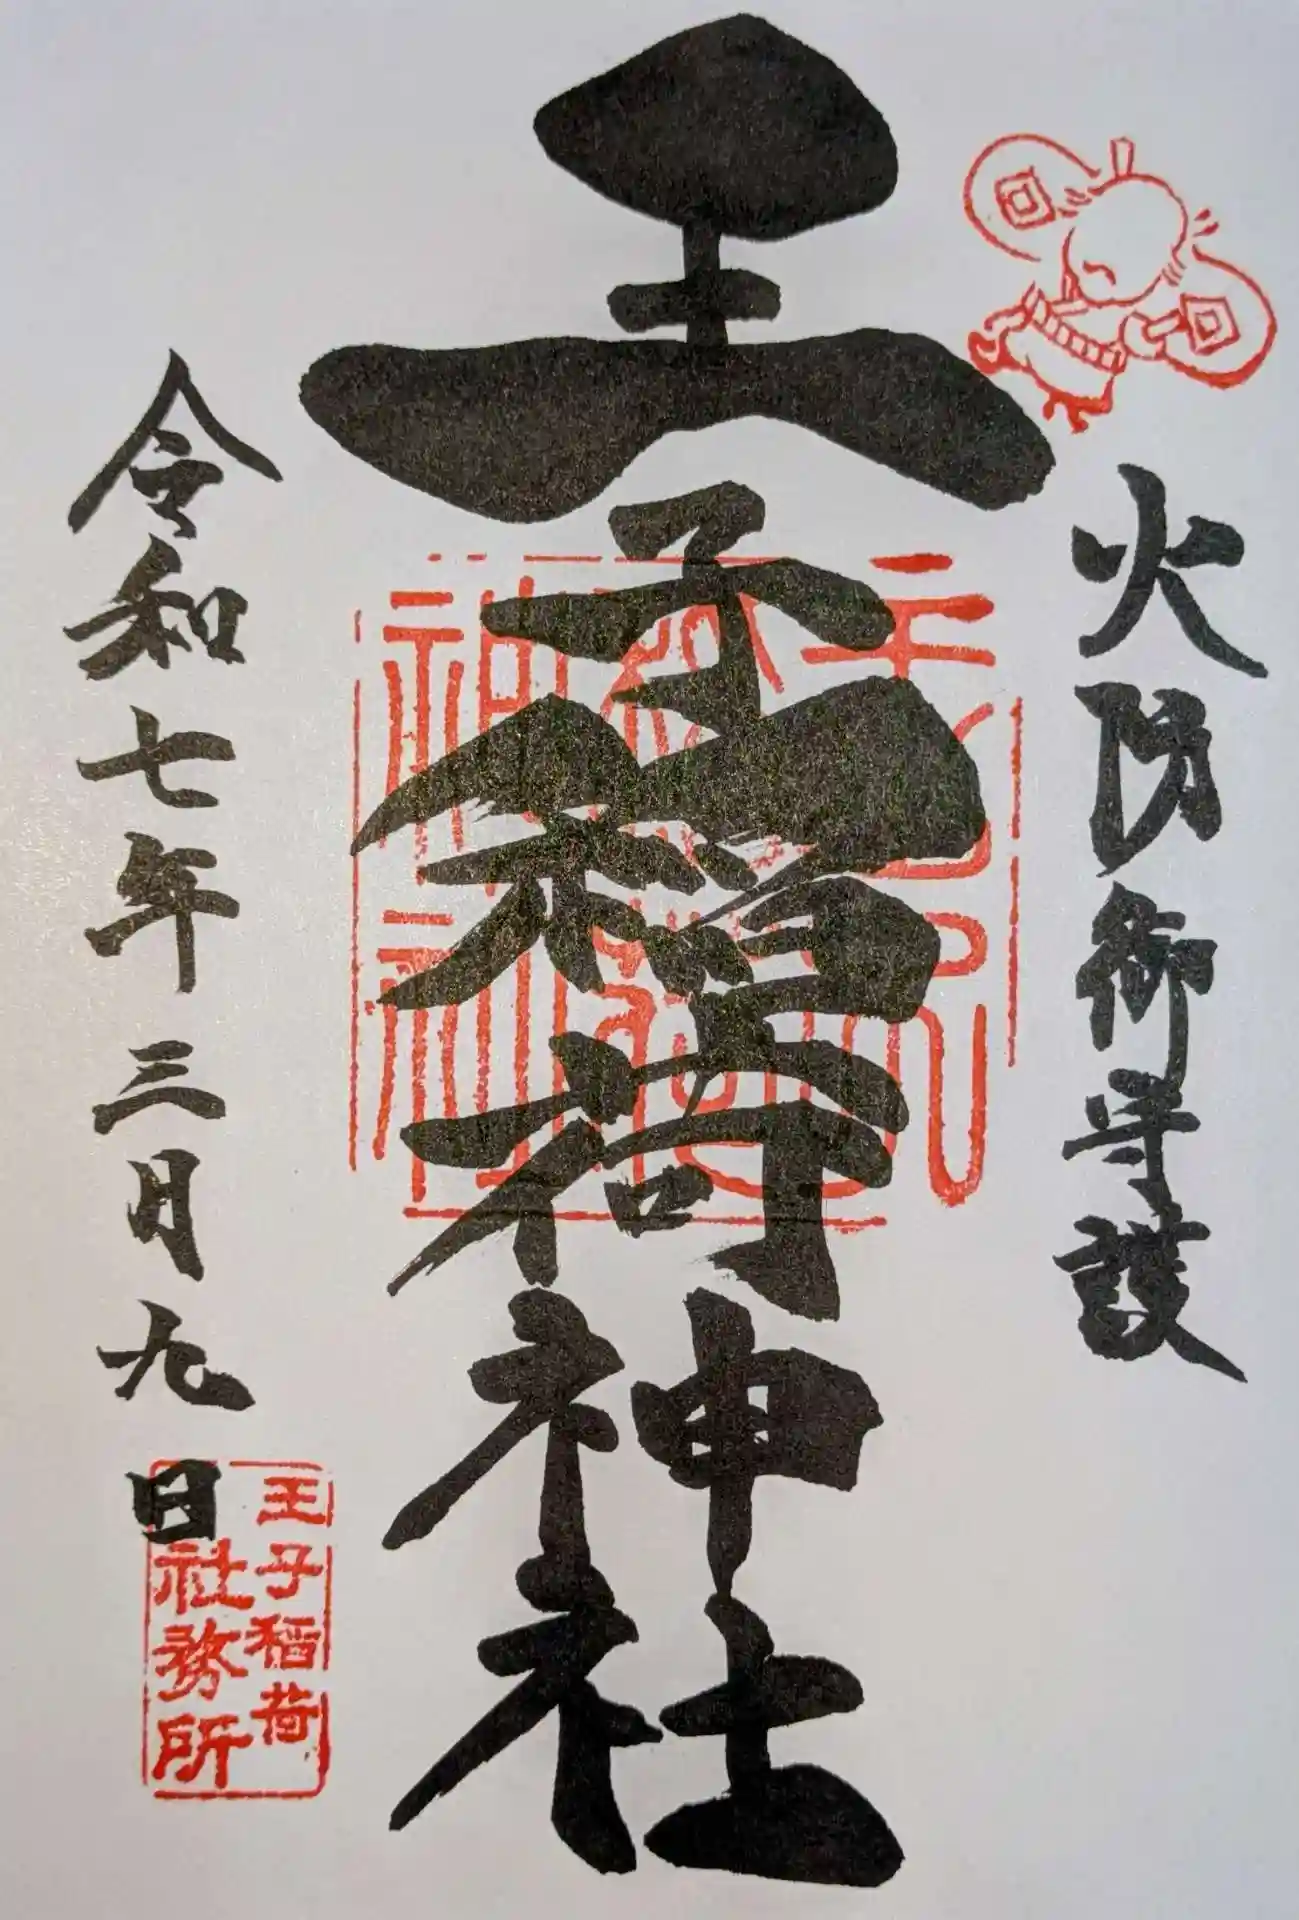 火防御守護
王子稲荷神社
王子稲荷神社印
令和七年三月九日
王子稲荷
社務所